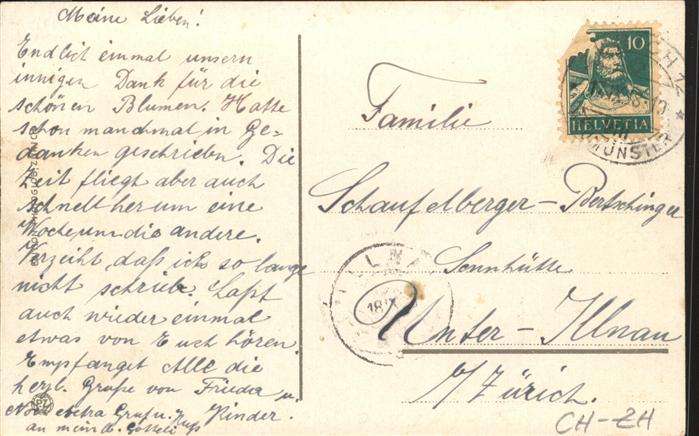 Meine Lieben!
Endlich einmal unsern
innigen Dank für die
schönen Blumen. Hatte
schon manchmal in Ge-
danken geschrieben. Die
Zeit fliegt aber auch
schnell herum eine
Woche um die andere.
Verzeiht daß ich so lange
nicht schrieb. Laßt
auch wieder einmal
etwas von Euch hören.
Empfanget Alle die
herzl. Grüße von Frieda u.
Kinder.
Noch extra Gruß u. Kuß
an mein lb.
Familie
Schaufelberger-Bertschinger
Sonnhütte
Unter-Illnau
b/Zürich.
CH-ZH
10
HELVETIA
MÜNSTER
18.IX